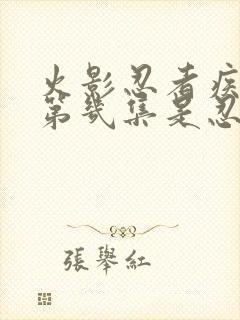 火影忍者疾
第几集是忍
張舉紅